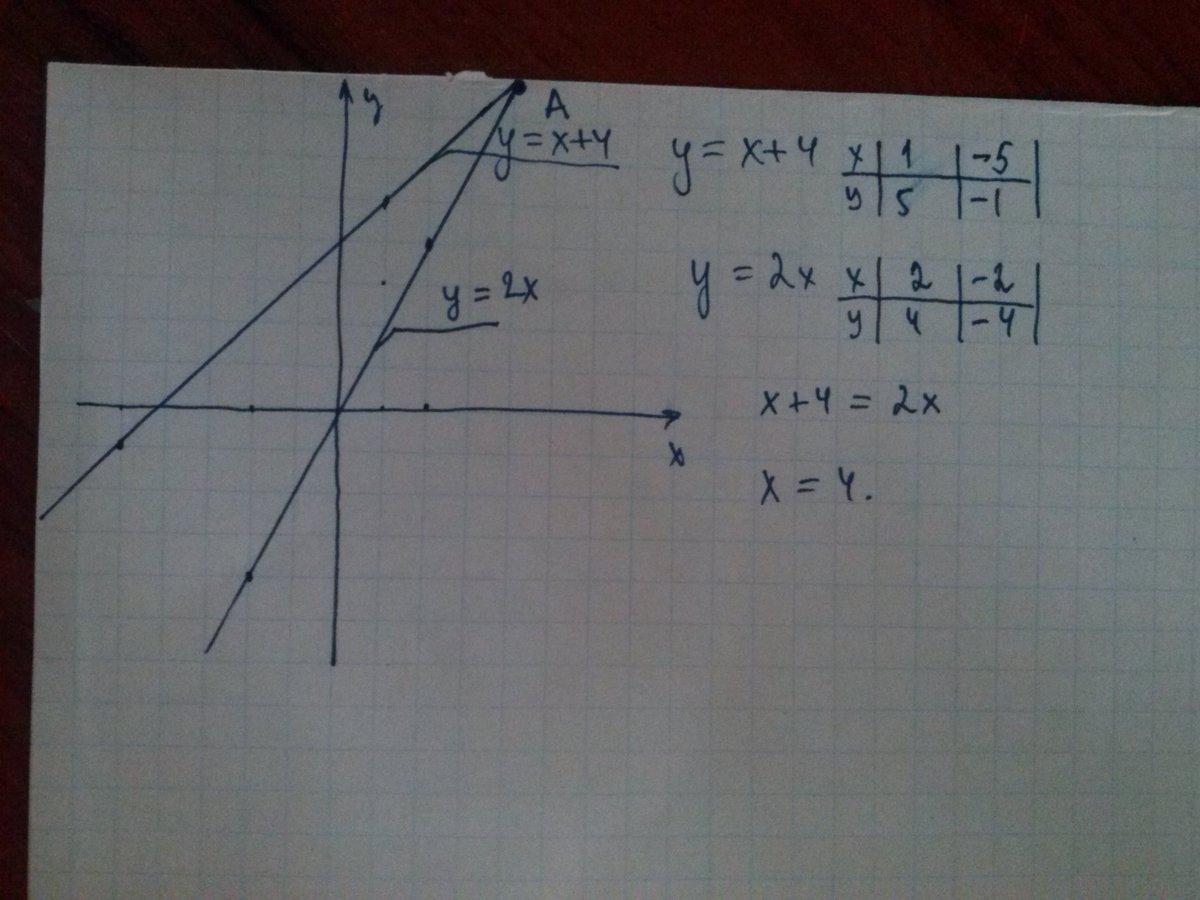 y
A
y = x+4
y = 2x
x
y = x+4 x | 1 | -5 |
y | 5 | -1 |
y = 2x x | 2 | -2 |
y | 4 | -4 |
x+4 = 2x
x = 4.